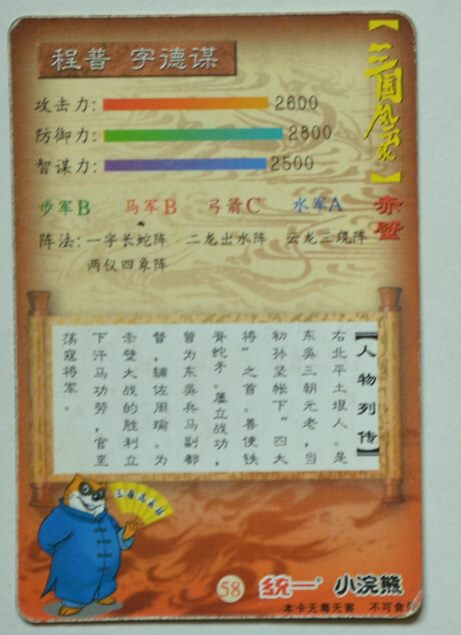 程普 字德谋
【三国风云录】
赤壁
攻击力: 2600
防御力: 2800
智谋力: 2500
步军B 马军B 弓箭C 水军A
阵法: 一字长蛇阵 二龙出水阵 云龙三现阵
两仪四象阵
【人物列传】
右北平土垠人。是
东吴三朝元老,当
初孙坚帐下“四大
将”之首。善使铁
脊蛇矛。屡立战功,
曾为东吴兵马副都
督,辅佐周瑜。为
赤壁大战的胜利立
下汗马功劳,官至
荡寇将军。
58 统一 小浣熊
本卡无毒无害 不可食